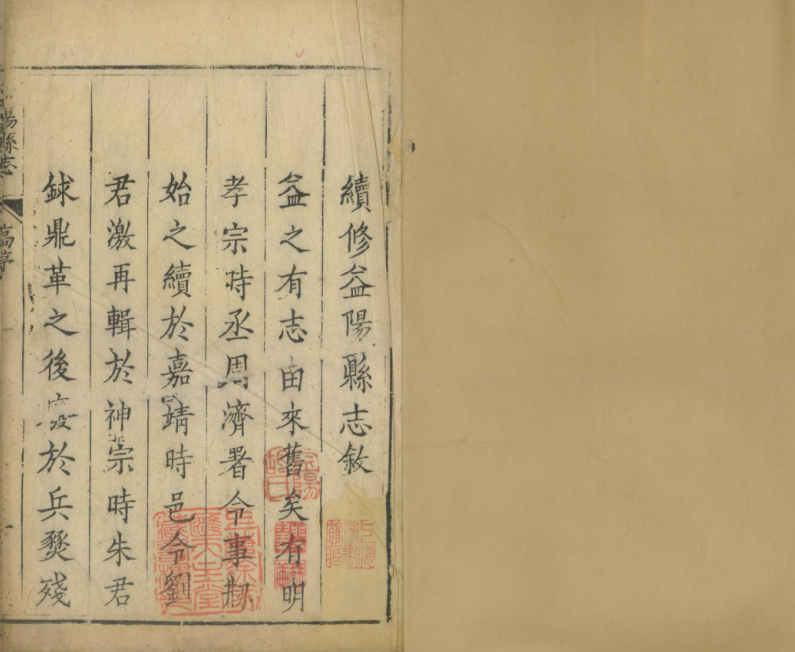 續修益陽縣志敘
益之有志由來舊矣有明
孝宗時丞周濟署令事刱
始之續於嘉靖時邑令劉
君激再輯於神宗時朱君
銶鼎革之後廢於兵燹殘
陽縣志